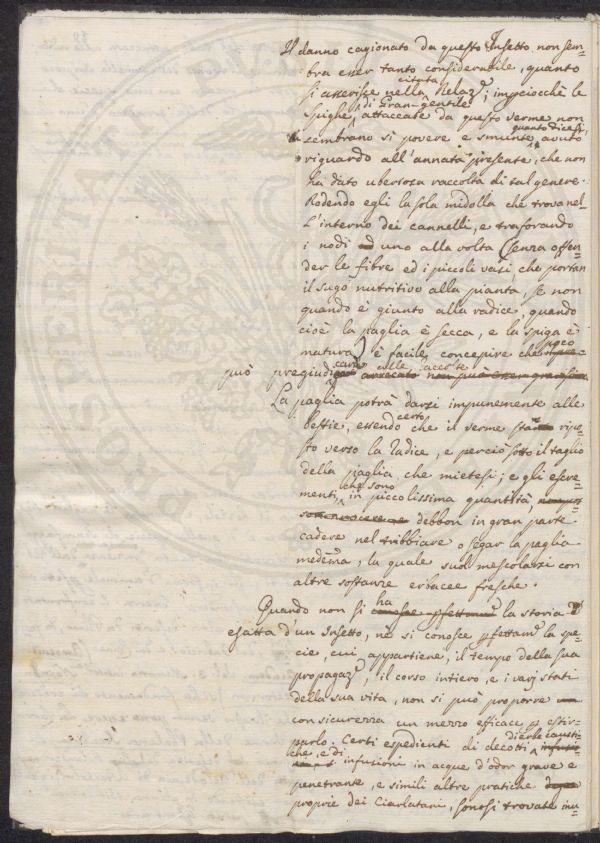 Il danno cagionato da questo Insetto non sem-
bra esser tanto considerabile, quanto
si asserisce nella citata Relaz.e; impciocchè le
Spighe di Gran gentile, attaccate da questo verme non
sembrano sì povere e smunte, quanto dicesi, avuto
riguardo all'annata presente, che non
ha dato ubertosa raccolta di tal genere.
Rodendo egli la sola midolla che trova nel-
l'interno dei cannelli, e traforando
i nodi ad uno alla volta (senza offen-
der le fibre ed i piccoli vasi, che portan
il sugo nutritivo alla pianta, se non
quando è giunto alla radice, quando
cioè la paglia è secca, e la spiga è
matura) è facile concepire che poco
può pregiudicare alle raccolte
La paglia potrà darsi impunemente alle
bestie, essendo certo che il verme ripo-
sto verso la radice, e perciò sotto il taglio
della paglia che mietesi; e gli escre-
menti che sono in piccolissima quantità,
debbon in gran parte
cadere nel tribbiare o segar la paglia
medema, la quale suol mescolarsi con
altre sostanze erbacee fresche.
Quando non si ha la storia
esatta d'un Insetto, nè si conosce pfettam.e la spe-
cie, cui appartiene, il tempo della sua
propagaz.e, il corso intiero, e i varj stati
della sua vita, non si può proporre
con sicurezza un mezzo efficace p estir-
parlo. Certi espedienti di decotti
che, e di infusioni in acque d'odor grave e
penetrante, e simili altre pratiche
proprie dei Ciarlatani, sonosi trovate inu-